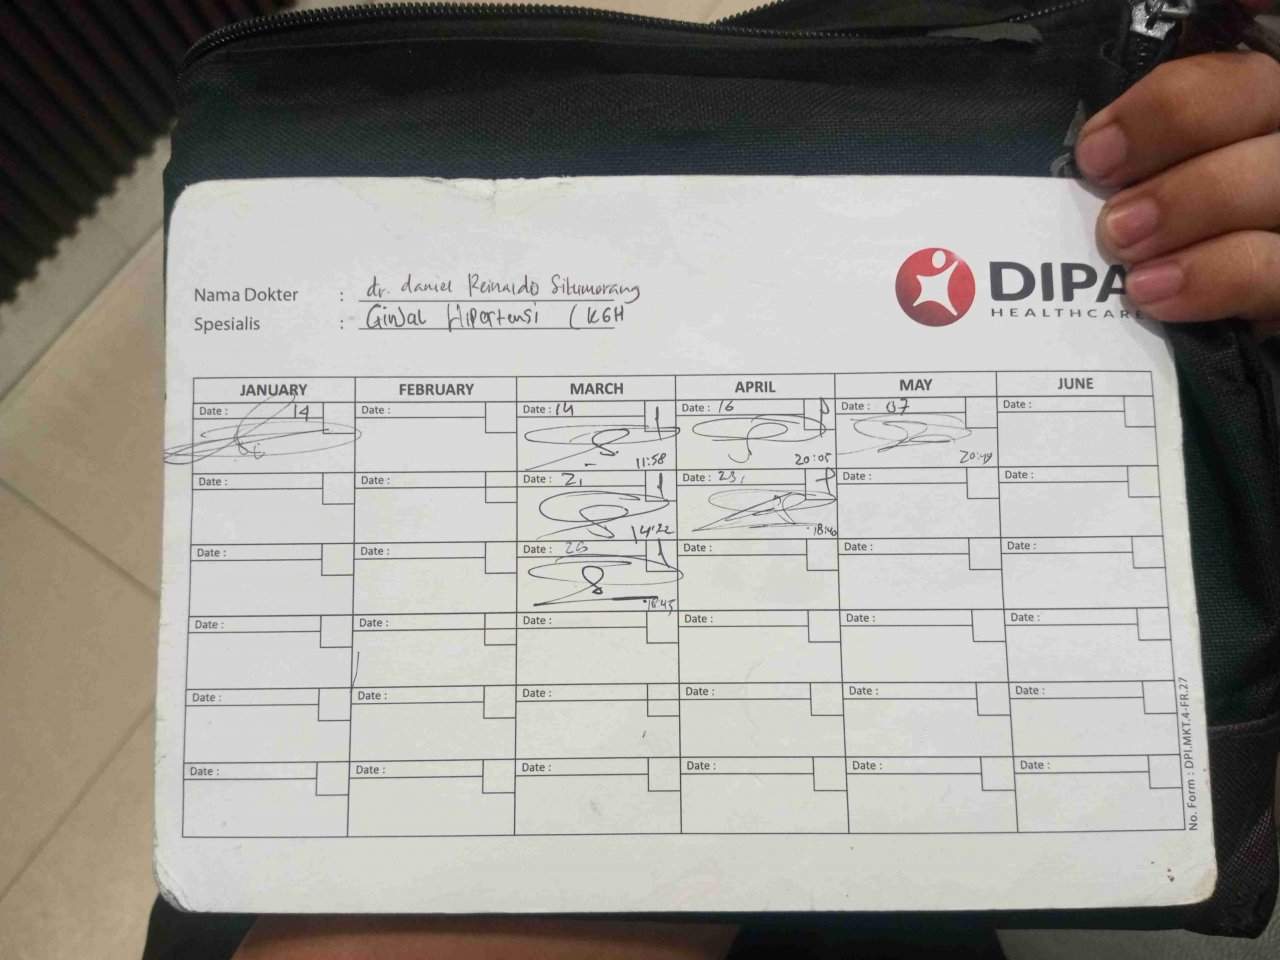 DIPA
HEALTHCARE
Nama Dokter : dr. daniel Reinaldo Situmorang
Spesialis : Ginjal Hipertensi (KGH
JANUARY FEBRUARY MARCH APRIL MAY JUNE
Date : 14 Date : Date : 14 Date : 16 Date : 07 Date :
11:58 20:05 20:49
Date : Date : Date : 21 Date : 23, Date : Date :
14:22 18:40
Date : Date : Date : 26 Date : Date : Date :
18:45
Date : Date : Date : Date : Date : Date :
Date : Date : Date : Date : Date : Date :
Date : Date : Date : Date : Date : Date :
No. Form : DPI.MKT.4-FR.27